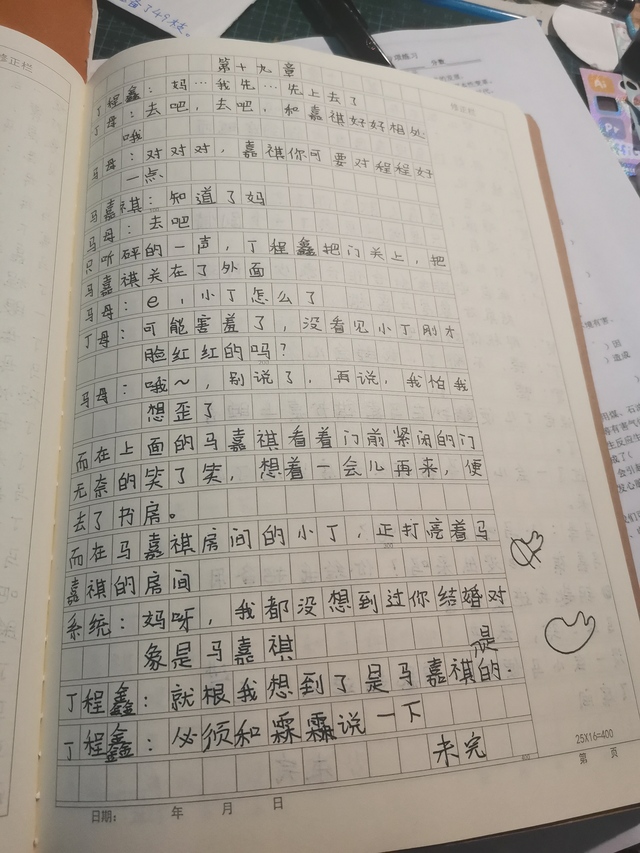 备了49枝。
修正栏
第十九章
丁程鑫：妈…我先…先上去了
丁母：去吧，去吧，和嘉祺好好相处
哦
马母：对对对，嘉祺你可要对程程好
一点
马嘉祺：知道了妈
马母：去吧
只听砰的一声，丁程鑫把门关上，把
马嘉祺关在了外面
马母：e，小丁怎么了
丁母：可能害羞了，没看见小丁刚才
脸红红的吗？
马母：哦～，别说了，再说，我怕我
想歪了
而在上面的马嘉祺看着门前紧闭的门
无奈的笑了笑，想着一会儿再来，便
去了书房。
而在马嘉祺房间的小丁，正打亮着马
嘉祺的房间
系统：妈呀，我都没想到过你结婚对
象是马嘉祺
是
丁程鑫：就根我想到了是马嘉祺的.
丁程鑫：必须和霖霖说一下
未完
25X16=400
第 页
日期： 年 月 日
Ai
Pr